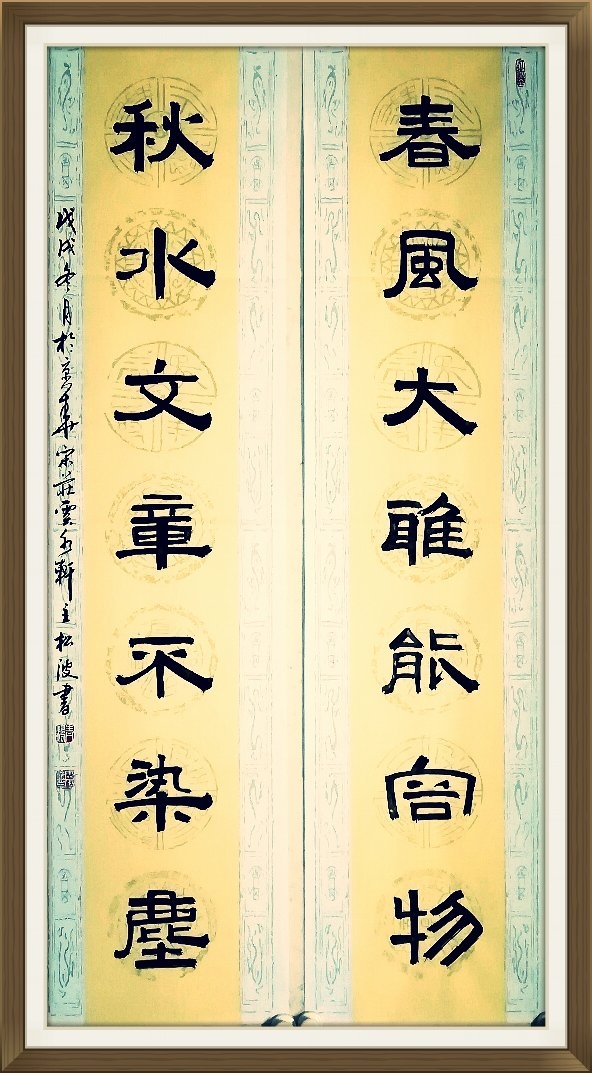 春風大雅能容物
秋水文章不染塵
戊戌冬月於京華宋莊雲水軒主松波書